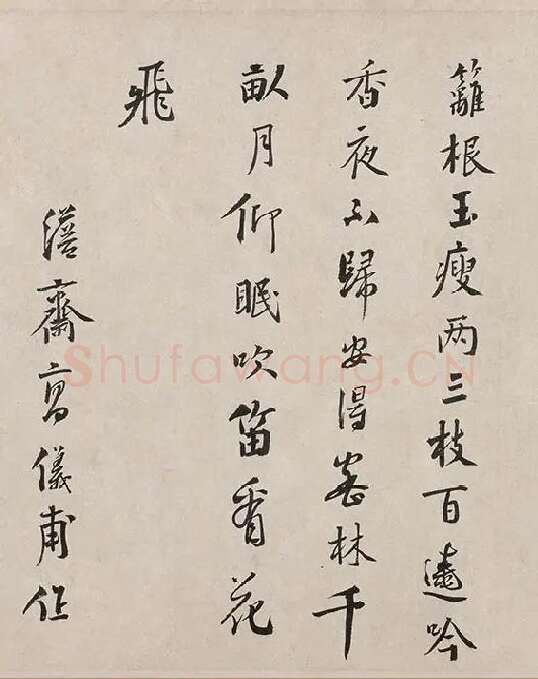 籬根玉瘦两三枝百遶吟
香夜不歸安得林千
畝月仰眠吹笛看花
飛
齋高儀甫作
Shufawang.CN